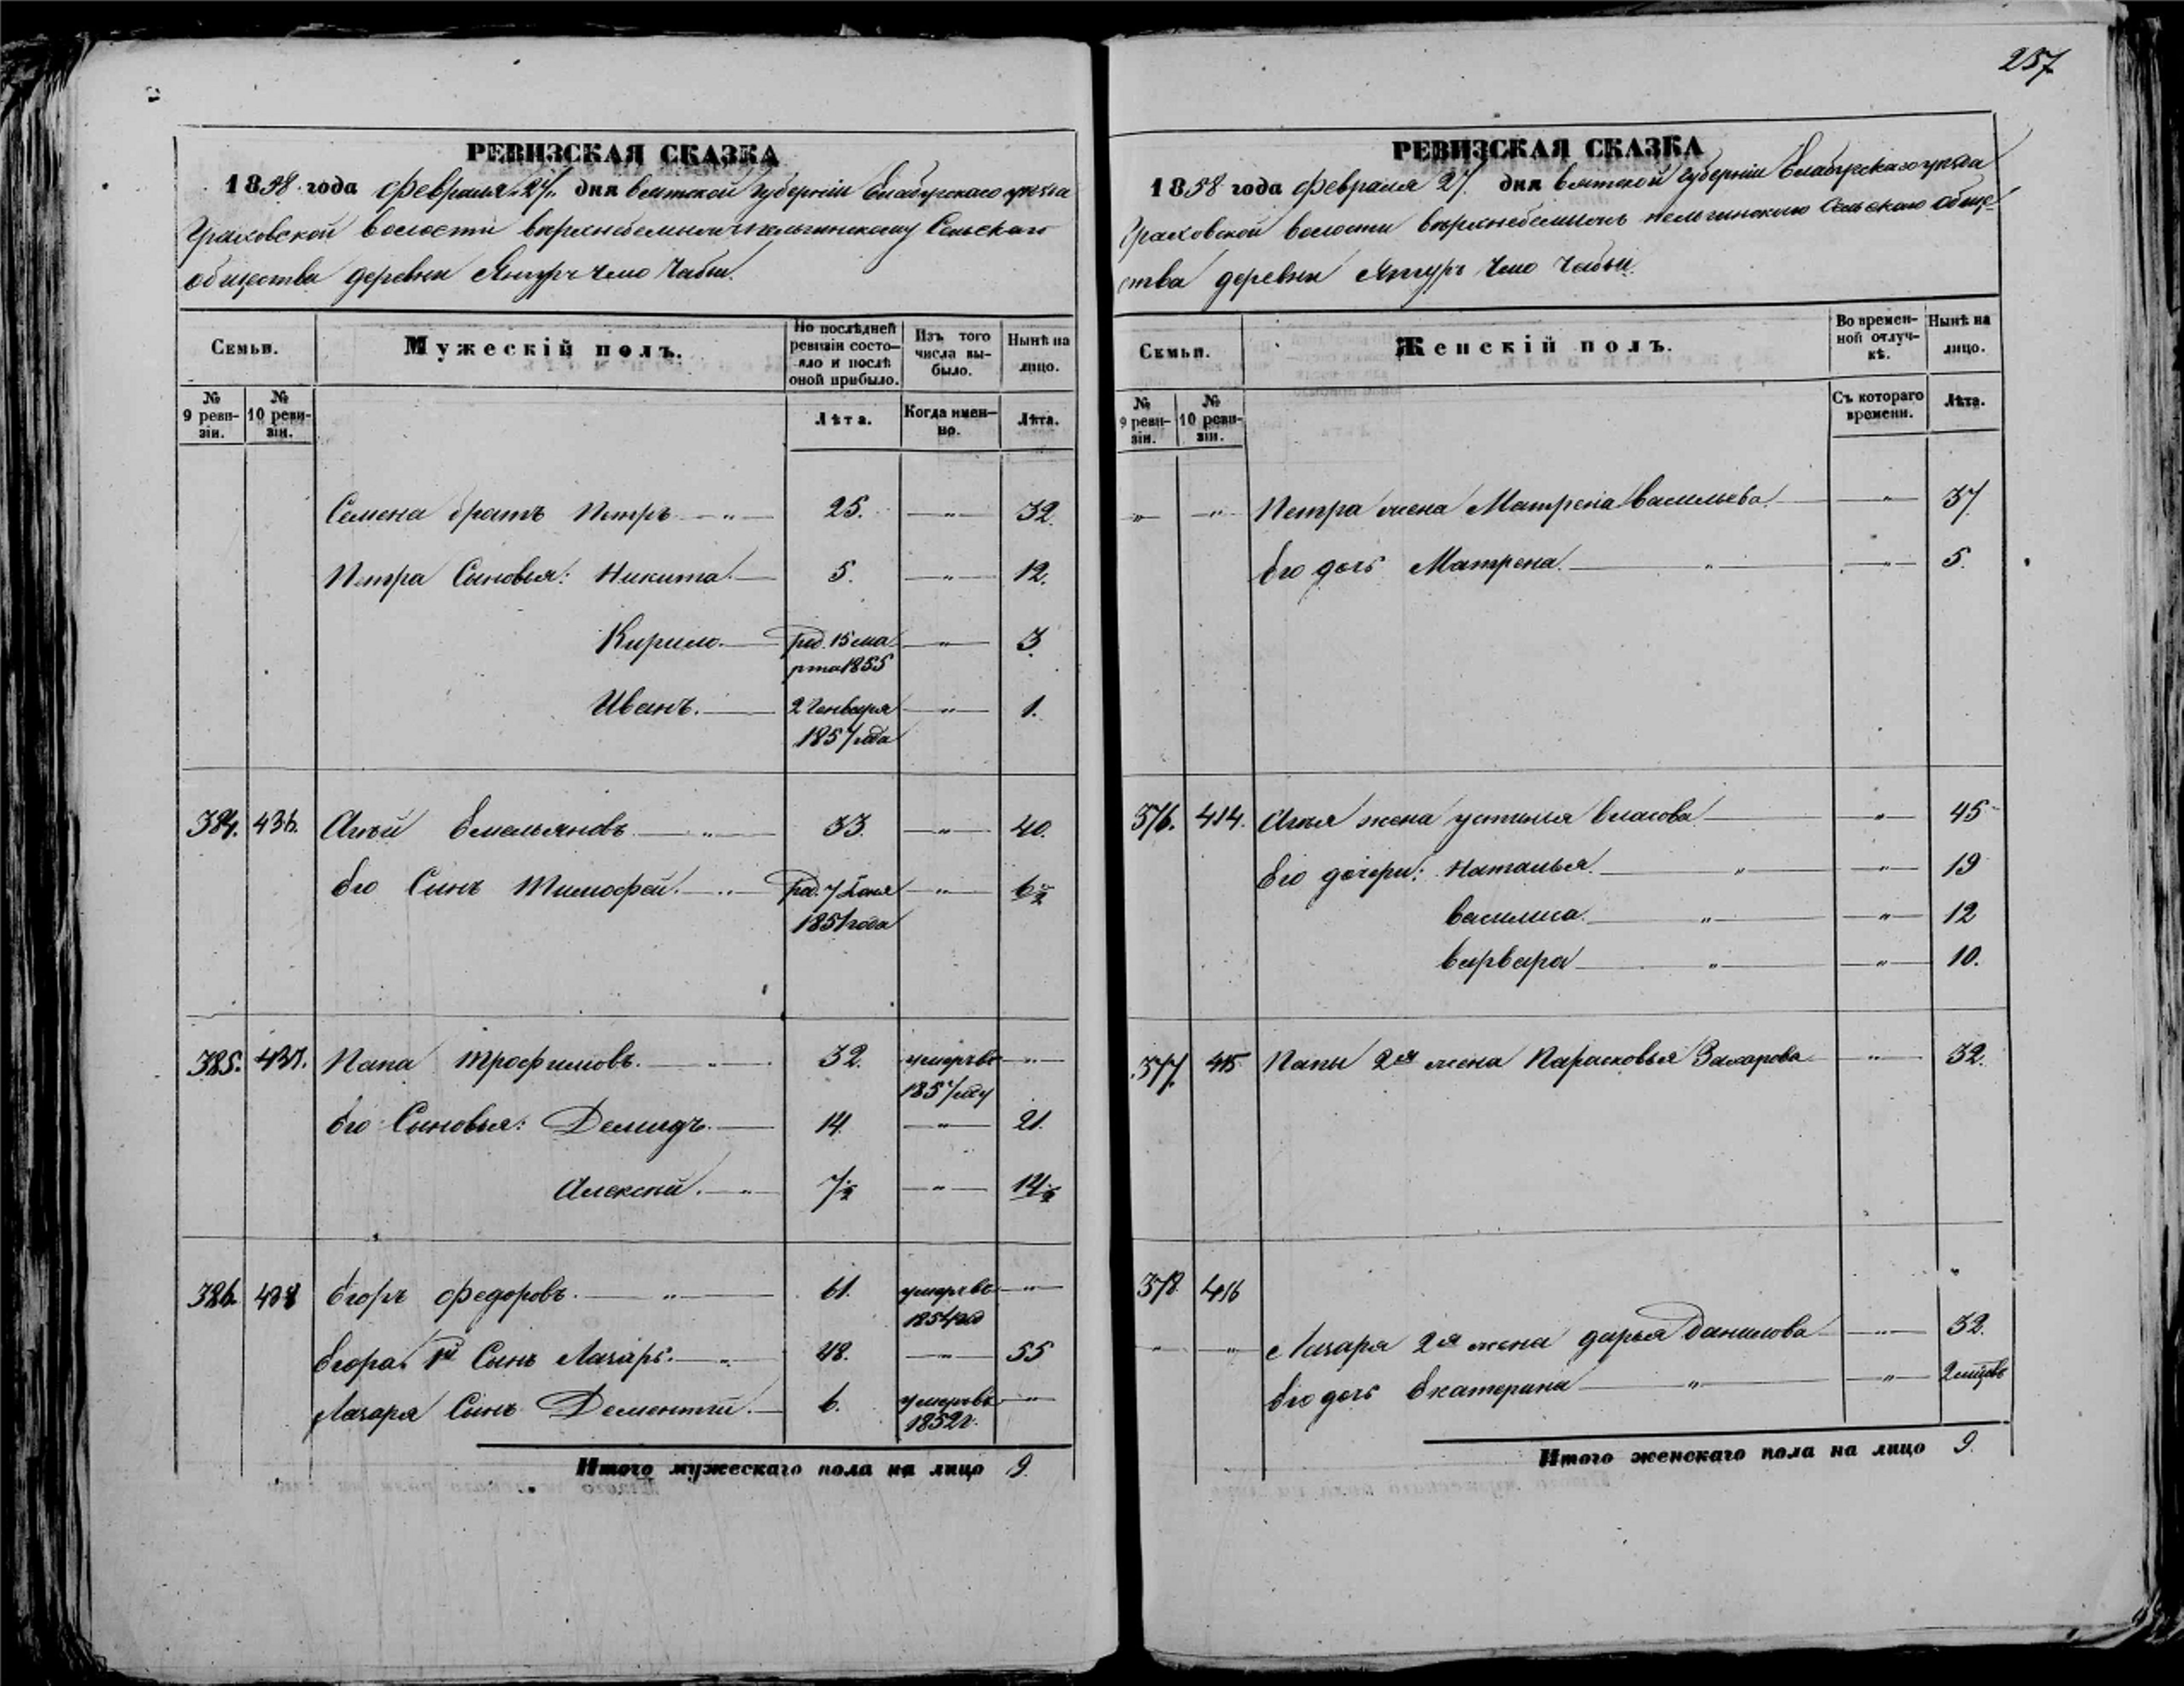 257
РЕВИЗСКАЯ СКАЗКА
1858 года Февраля 27 дня Вятской Губерніи Елабугскаго уѣзда
Граховской волости Сельскаго
общества деревни Чабьи.
Семьи.
Мужескій полъ.
По послѣдней ревизіи состояло и послѣ оной прибыло.
Изъ того числа выбыло.
Нынѣ на лицо.
№ 9 ревизіи.
№ 10 ревизіи.
Лѣта.
Когда именно.
Лѣта.
Семена братъ Петръ — " — 25. — " — 32.
Петра Сыновья: Никита. — 5. — " — 12.
Кирило. — род. 15 ма — " — 3.
рта 1855
Иванъ. — 2 Генваря — " — 1.
1857 года
384. 436. Емельяновъ — " — 33. — " — 40.
Его Сынъ Тимофей. — " — род. 7 — " — 6 ½
1851 года
385. 437. Папа Трофимовъ. — " — 32. умеръ въ — " —
1857 году
Его Сыновья: Демидъ. — 14. — " — 21.
Алексѣй. — " — 7 ½ — " — 14 ½
386. 438 Егоръ Федоровъ. — " — 61. умеръ въ — " —
1854
Егора 1й Сынъ Лазарь. — " — 48. — " — 55
Лазаря Сынъ Дементій. — 6. умеръ въ — " —
1852 г.
Итого мужескаго пола на лицо 9.
РЕВИЗСКАЯ СКАЗКА
1858 года Февраля 27 дня Вятской Губерніи Елабугскаго уѣзда
Граховской волости Сельскаго обще-
ства деревни Чабьи.
Семьи.
Женскій полъ.
Во временной отлучкѣ.
Нынѣ на лицо.
№ 9 ревизіи.
№ 10 ревизіи.
Съ котораго времени.
Лѣта.
" " Петра жена Матрена Васильева. — " — 37
Его дочь Матрена. — " — — " — 5.
376. 414. жена Устинья Власова — " — 45
Его дочери: Наталья. — " — — " — 19
Василиса. — " — — " — 12
Варвара — " — — " — 10.
377. 415 Папы 2я жена Парасковья Захарова — " — 32.
378. 416 "
" " Лазаря 2я жена Дарья Данилова — " — 32.
Его дочь Екатерина — " — — " — 2
Итого женскаго пола на лицо 9.